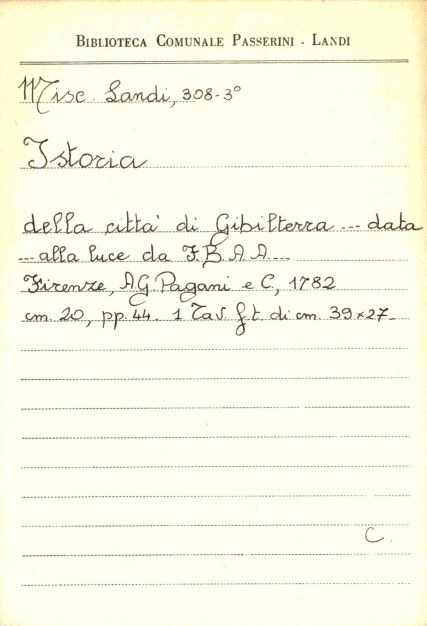 BIBLIOTECA COMUNALE PASSERINI - LANDI
Misc. Landi, 308-3°
Istoria
della città di Gibilterra --- data
--- alla luce da F. B. A. A. ---
Firenze, A.G. Pagani e C., 1782
cm. 20, pp. 44. 1 Tav. f.t. di cm. 39×27-
C.